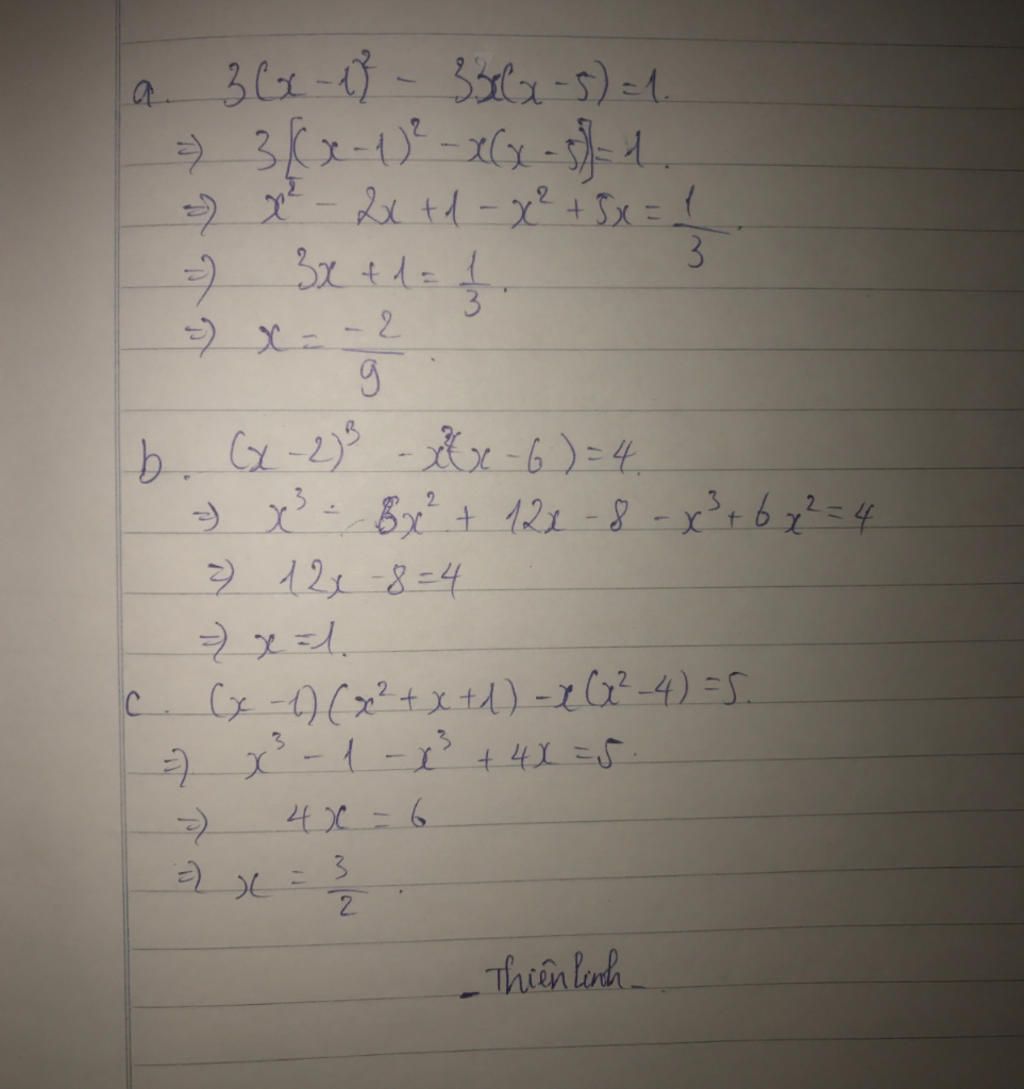 a. 3(x-1)² - 3x(x-5) = 1.
⇒ 3[(x-1)² - x(x-5)] = 1.
⇒ x² - 2x + 1 - x² + 5x = 1/3.
⇒ 3x + 1 = 1/3.
⇒ x = -2/9.
b. (x-2)³ - x²(x-6) = 4.
⇒ x³ - 6x² + 12x - 8 - x³ + 6x² = 4
⇒ 12x - 8 = 4
⇒ x = 1.
c. (x-1)(x²+x+1) - x(x²-4) = 5.
⇒ x³ - 1 - x³ + 4x = 5.
⇒ 4x = 6
⇒ x = 3/2.
- Thiên Linh -